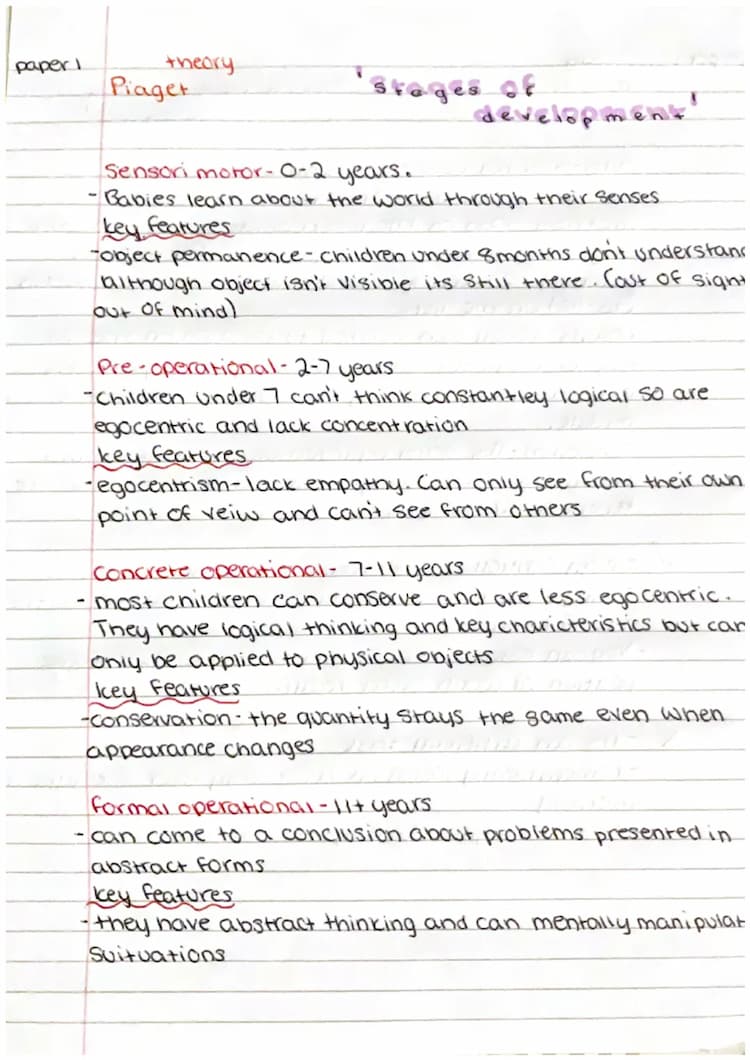 paper 1
theory
Piaget
'Stages of
development'
Sensori motor - 0-2 years.
- Babies learn about the world through their senses
key features
- object permanence - children under 8 months don't understand
although object isn't visible its still there. (out of sight
out of mind)
Pre-operational - 2-7 years
- Children under 7 can't think constantley logical so are
egocentric and lack concentration
key features
- egocentrism - lack empathy. Can only see from their own
point of veiw and can't see from others
Concrete operational - 7-11 years
- most children can conserve and are less egocentric.
They have logical thinking and key charicteristics but can
only be applied to physical objects
key features
- conservation - the quantity stays the same even when
appearance changes
formal operational - 11+ years
- can come to a conclusion about problems presented in
abstract forms
key features
- they have abstract thinking and can mentally manipulat
suituations